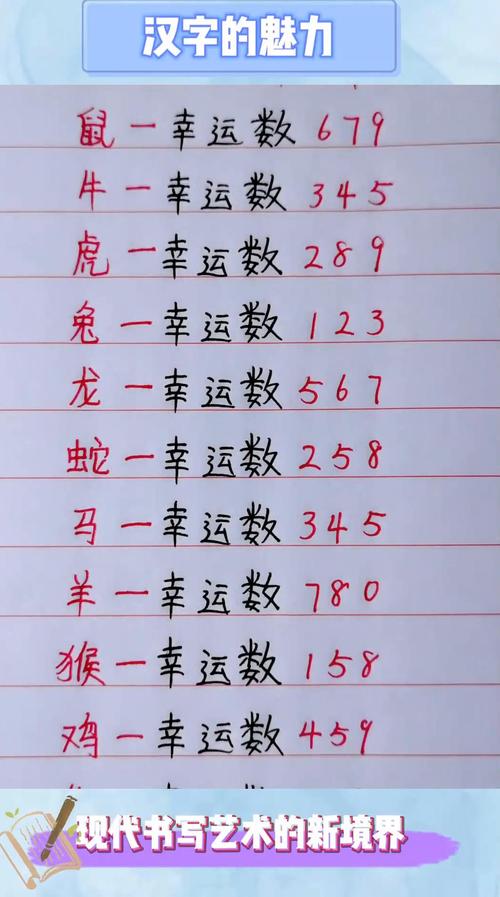 汉字的魅力
鼠一幸运数 679
牛一幸运数 345
虎一幸运数 289
兔一幸运数 123
龙一幸运数 567
蛇一幸运数 258
马一幸运数 345
羊一幸运数 780
猴一幸运数 158
鸡一幸运数 459
现代书写艺术的新境界